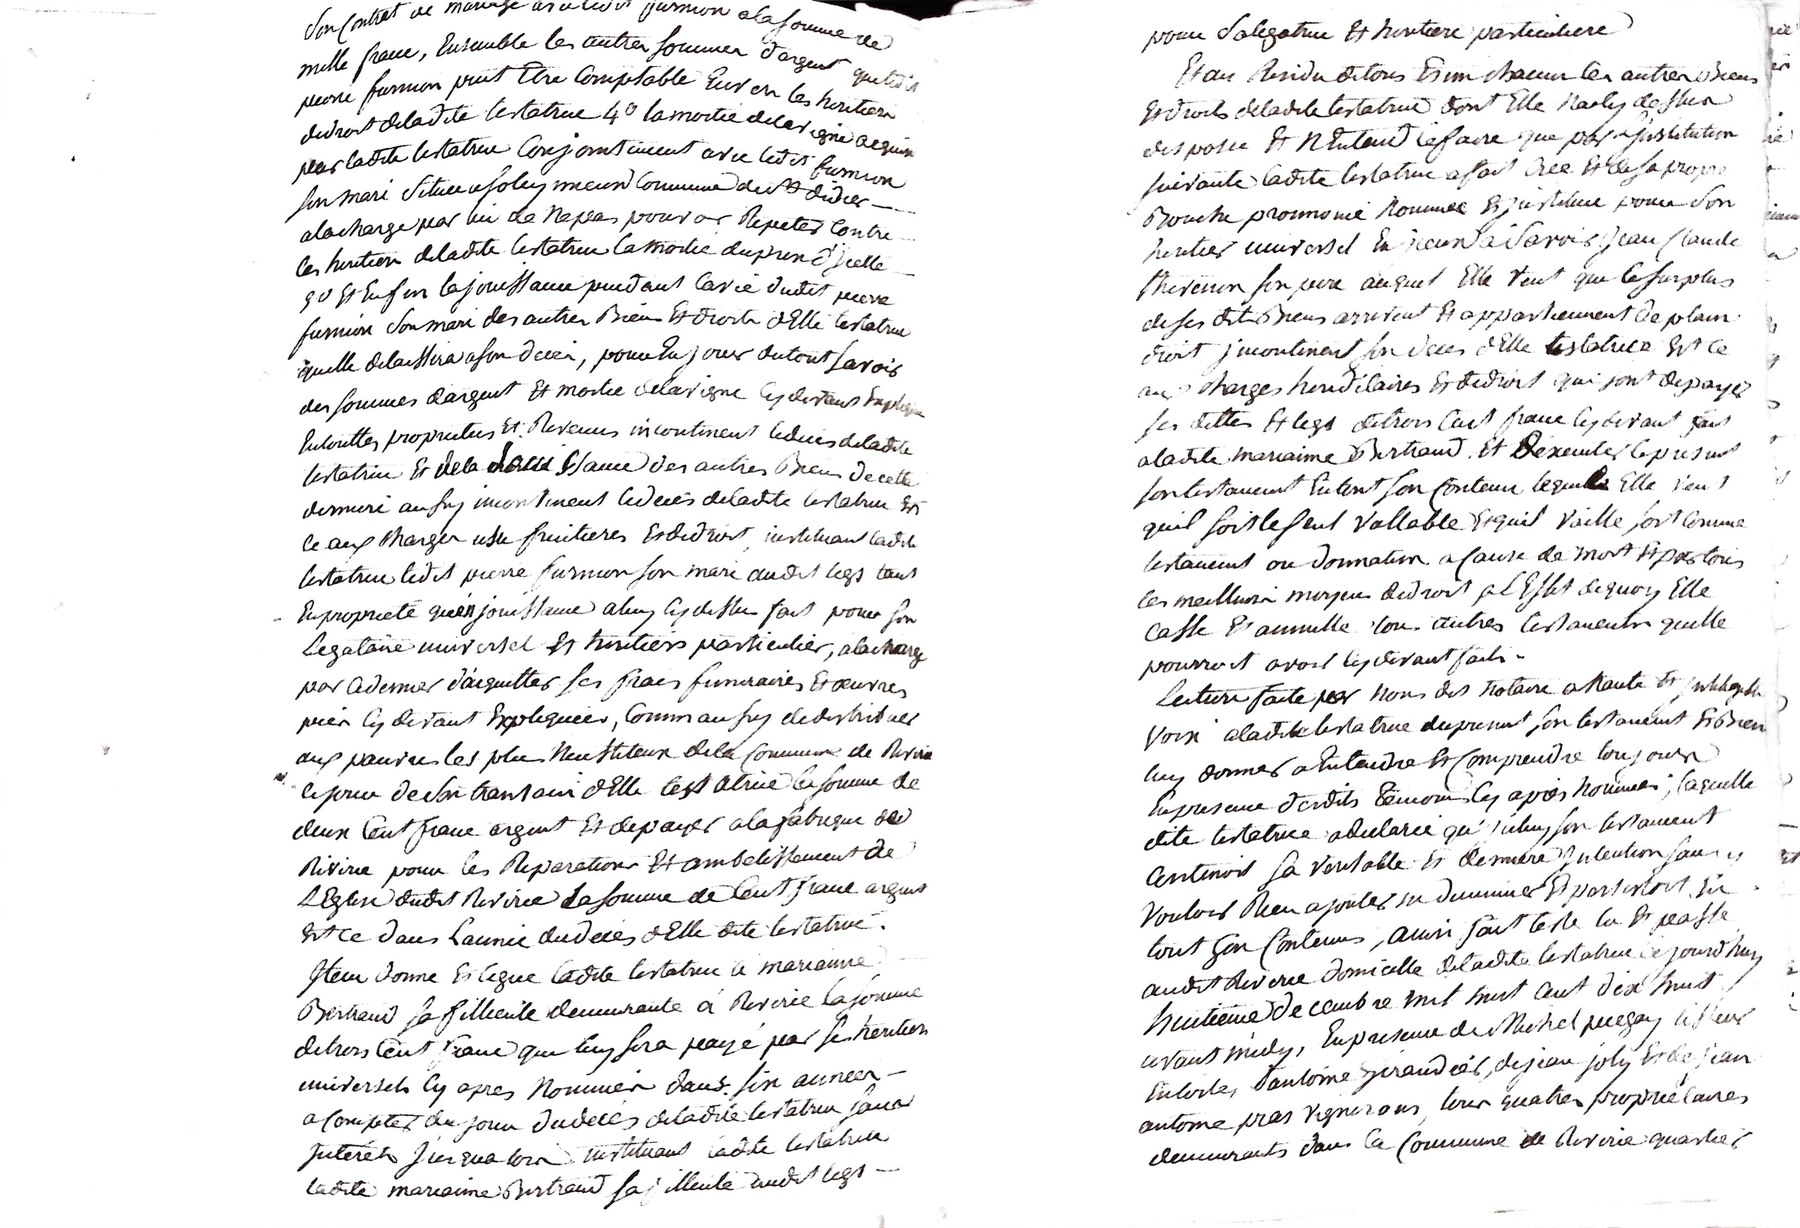 son Contrat de mariage avec ledit furnion a la somme de
mille franc, Ensemble les autres sommes d'argent que ledit
pierre furnion peut Etre Comptable Envers les heritiers
dedroit deladite testatrice 4° la moitié dela vigne acquise
par ladite testatrice Conjointement avec ledit furnion
son mari située a soleymieux Commune de St didier
alacharge par lui de ne pas pouvoir Repeter Contre
les heritiers deladite testatrice la moitié du prix d'jcelle
5° Et Enfin la jouissance pendant la vie dudit pierre
furnion son mari des autres Biens Et droits d'Elle testatrice
quelle delaissera a son deces, pour En jouir du tout savoir
des sommes dargent Et moitié delavigne cy devant Expliquée
En toutes proprietes Et Revenus incontinent le deces deladite
testatrice Et dela jouissance des autres Biens de cette
derniere aussy incontinent le deces deladite testatrice Et
ce aux charges usufruitieres Et de droit, instituant ladite
testatrice ledit pierre furnion son mari audit legs tant
En proprieté qu'en jouissance a luy cy dessus fait pour son
Legataire universel Et heritiers particulier, alacharge
par ce dernier d'acquitter ses frais funeraires Et œuvres
pies cy devant Expliquées, Comm aussy de distribuer
aux pauvres les plus Necessiteux dela Commune de Riverie
le jour de son trantain d'Elle testatrice la somme de
deux Cent franc argent Et depayer a la fabrique de
Riverie pour les Reparations Et ambelissement de
L'Eglise dudit Riverie La somme de Cent franc argent
Et ce dans L'année dudeces d'Elle dite testatrice.
Item donne Et legue ladite testatrice a marianne
Bertrand sa filleule demeurante à Riverie la somme
de trois Cent franc que luy sera payé par ses heritiers
universels cy apres Nommés dans six années
a Compter du jour du deces deladite testatrice sans
Interêts jusqua lors instituant ladite testatrice
ladite marianne Bertrand sa filleule audit legs
pour sa legatrice Et heritiere particuliere
Et au Residu de tous Et un chacun les autres Biens
Et droits deladite testatrice dont Elle Na cy dessus
disposée Et N'Entend le faire que par l'jnstitution
suivante ladite testatrice a fait Créé Et de sa propre
Bouche prononcé Nommé Et jnstitue pour son
heritier universel En jceux a savoir jean Claude
thivenon son pere auquel Elle veut que le surplus
de ses dits Biens arrivent Et appartiennent de plain
droit jncontinent son deces d'Elle testatrice Et ce
aux charges hereditaires Et de droit qui sont de payer
ses dettes Et legs de trois Cent franc cy devant fait
aladite marianne Bertrand, Et D'executer le present
son testament En tout son Contenu lequel Elle veut
quil soit le seul vallable Et quil vaille soit Comme
testament ou donnation a Cause de mort Et par tous
les meilleurs moyens de droit a l'Effet de quoy Elle
Casse Et annulle tous autres testaments quelle
pourroit avoir cy devant faits.
Lecture faite par nous dit notaire a haute Et jntelligible
voix aladite testatrice du present son testament Et Bien
luy donner a Entendre Et Comprendre toujours
En presence desdits temoins cy après Nommés, laquelle
dite testatrice a declaré qu'jceluy son testament
Contenoit sa veritable Et derniere jntention sans y
vouloir Rien ajouter ni diminuer Et persistoit En
tout son Contenu, ainsi fait testé lu Et passé
audit Riverie domicille deladite testatrice le jourd'huy
huitieme decembre mil huit cent dix huit
avant midy, En presence de Michel pugny tisseur
En toiles, d'antoine Giraudier, de jean joly Et de jean
antoine pras vignerons, tous quatres proprietaires
demeurants dans la Commune de Riverie quartier